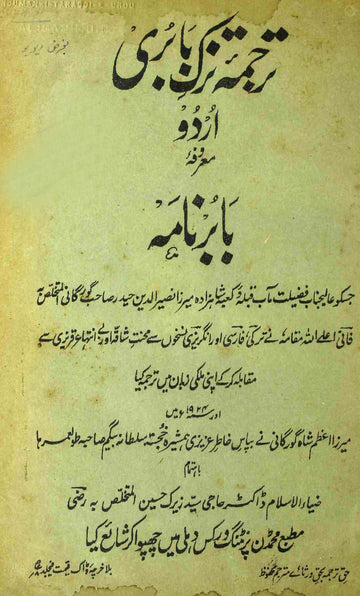 ANJUMAN-I-TARAQQI-E URDU
ترجمۂ تزک بابری
اُردُو
معروفہٗ
بابُر نامہ
جسکو عالیجناب فضیلت مآب قبلہ و کعبہ شاہزادہ میرزا نصیر الدین حیدر صاحب گورگانی المتخلص بہ
فانی اعلے اللہ مقامہ نے ترکی فارسی اور انگریزی نسخوں سے محنتِ شاقہ اور بے انتہا عرقریزی سے
مقابلہ کر کے اپنی ملکی زبان میں ترجمہ کیا
اور ۱۹۲۴ء میں
میرزا اعظم شاہ گورگانی نے بپاس خاطر عزیزی ہمشیرہ خجستہ سلطانہ بیگم صاحبہ طولعمرہا
باہتمام
ضیاء الاسلام ڈاکٹر حاجی سید زیرک حسین المتخلص بہ رضی
مطبع محمڈن پرنٹنگ ورکس دہلی میں چھپوا کر شایع کیا
حق ترجمہ بحق ورثائے مترجم محفوظ
بلا خرچہ ڈاک قیمت فیجلد